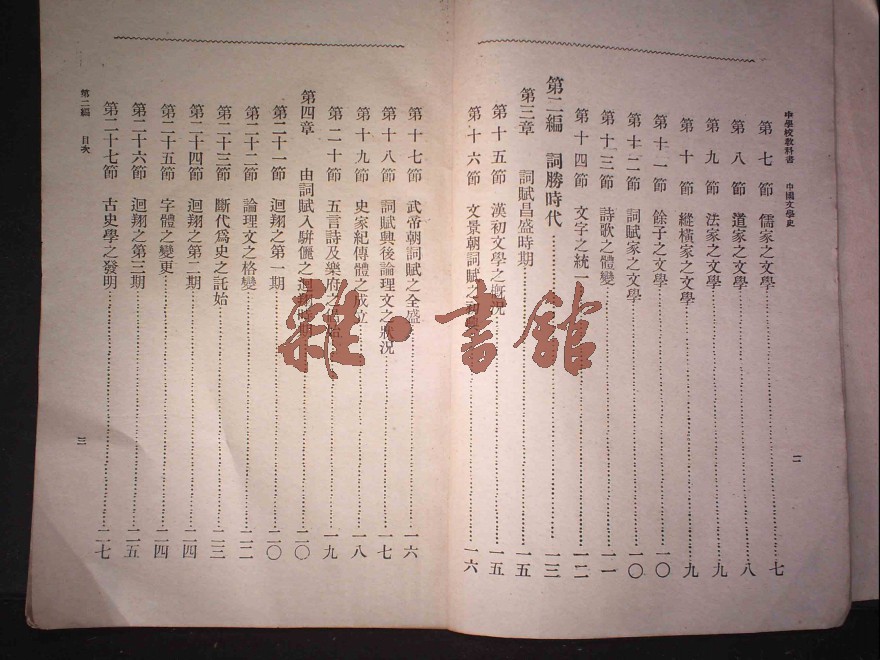 中學校教科書 中國文學史 二
第七節 儒家之文學 七
第八節 道家之文學 八
第九節 法家之文學 九
第十節 縱橫家之文學 九
第十一節 餘子之文學 一〇
第十二節 詞賦家之文學 一〇
第十三節 詩歌之體變 一一
第十四節 文字之統一 一二
第二編 詞勝時代 一三
第三章 詞賦昌盛時期 一五
第十五節 漢初文學之概況 一五
第十六節 文景朝詞賦之 一六
第十七節 武帝朝詞賦之全盛 一六
第十八節 詞賦興後論理文之狀況 一七
第十九節 史家紀傳體之成立 一八
第二十節 五言詩及樂府之 一九
第四章 由詞賦入駢儷之迴翔時期 二〇
第二十一節 迴翔之第一期 二〇
第二十二節 論理文之格變 二二
第二十三節 斷代爲史之託始 二三
第二十四節 迴翔之第二期 二四
第二十五節 字體之變更 二四
第二十六節 迴翔之第三期 二五
第二十七節 古史學之發明 二七
第二編 目次 三
雜·書館